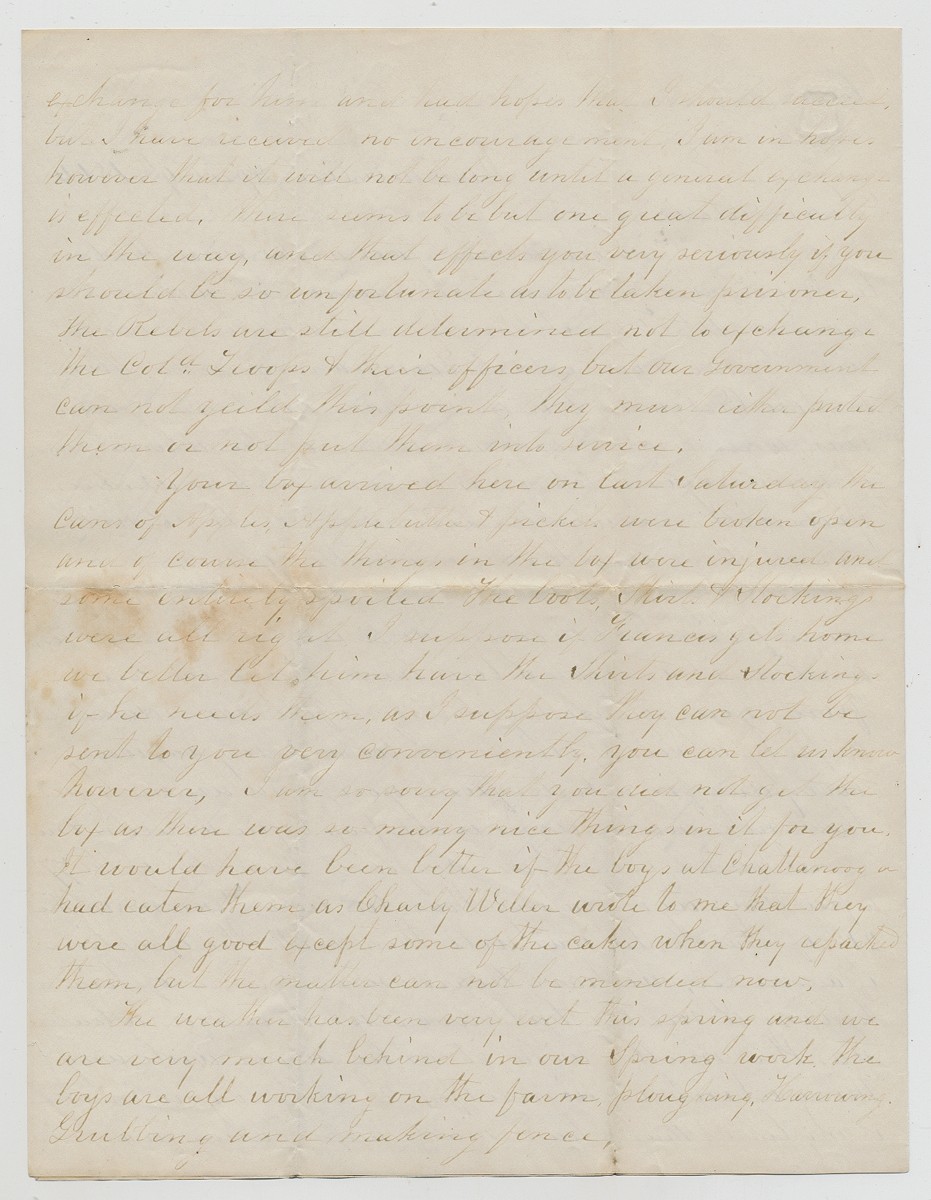 exchange for him and had hopes that I should succeed,
but I have received no encouragement, I am in hopes
however that it will not be long until a general exchange
is effected. There seems to be but one great difficulty
in the way, and that effects you very seriously if you
should be so unfortunate as to be taken prisoner,
The Rebels are still determined not to exchange
the Cold. Troops & their officers but our Government
can not yeild this point, they must either protect
them or not put them into service.
Your box arrived here on last Saturday the
Cans of Apples, Applebutter & pickels were broken open
and of course the things in the box were injured and
some entirely spoiled The boots, Shirts & Stockings
were all right I suppose if Francis gets home
we better let him have the Shirts and Stockings
if he needs them, as I suppose they can not be
sent to you very conveniently. you can let us know
however, I am so sorry that you did not get the
box as there was so many nice things in it for you.
It would have been better if the boys at Chattanooga
had eaten them as Charly Weller wrote to me that they
were all good except some of the cakes when they repacked
them, but the matter can not be mended now,
The weather has been very wet this spring and we
are very much behind in our Spring work. the
boys are all working on the farm, ploughing, Harrowing,
Grubbing and making fence,